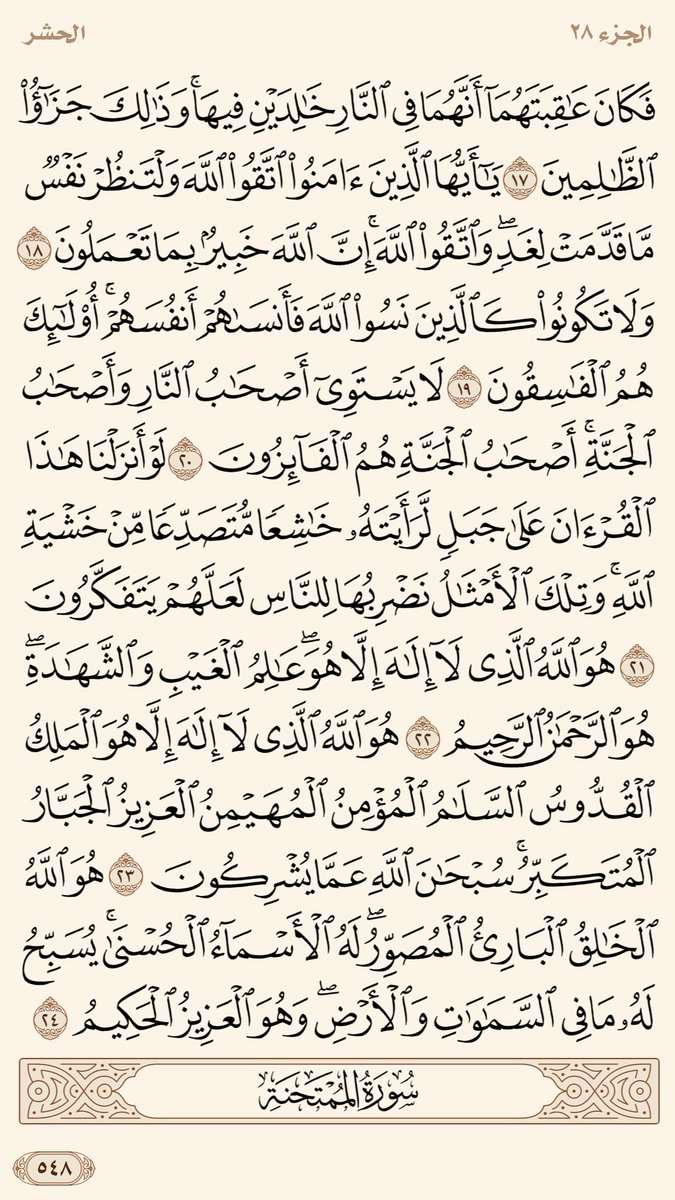 الجزء ٢٨
الحشر
فَكَانَ عَٰقِبَتَهُمَآ أَنَّهُمَا فِي ٱلنَّارِ خَٰلِدَيۡنِ فِيهَاۚ وَذَٰلِكَ جَزَٰٓؤُاْ
ٱلظَّٰلِمِينَ ١٧ يَٰٓأَيُّهَا ٱلَّذِينَ ءَامَنُواْ ٱتَّقُواْ ٱللَّهَ وَلۡتَنظُرۡ نَفۡسٞ
مَّا قَدَّمَتۡ لِغَدٖۖ وَٱتَّقُواْ ٱللَّهَۚ إِنَّ ٱللَّهَ خَبِيرُۢ بِمَا تَعۡمَلُونَ ١٨
وَلَا تَكُونُواْ كَٱلَّذِينَ نَسُواْ ٱللَّهَ فَأَنسَىٰهُمۡ أَنفُسَهُمۡۚ أُوْلَٰٓئِكَ
هُمُ ٱلۡفَٰسِقُونَ ١٩ لَا يَسۡتَوِيٓ أَصۡحَٰبُ ٱلنَّارِ وَأَصۡحَٰبُ
ٱلۡجَنَّةِۚ أَصۡحَٰبُ ٱلۡجَنَّةِ هُمُ ٱلۡفَآئِزُونَ ٢٠ لَوۡ أَنزَلۡنَا هَٰذَا
ٱلۡقُرۡءَانَ عَلَىٰ جَبَلٖ لَّرَأَيۡتَهُۥ خَٰشِعٗا مُّتَصَدِّعٗا مِّنۡ خَشۡيَةِ
ٱللَّهِۚ وَتِلۡكَ ٱلۡأَمۡثَٰلُ نَضۡرِبُهَا لِلنَّاسِ لَعَلَّهُمۡ يَتَفَكَّرُونَ
٢١ هُوَ ٱللَّهُ ٱلَّذِي لَآ إِلَٰهَ إِلَّا هُوَۖ عَٰلِمُ ٱلۡغَيۡبِ وَٱلشَّهَٰدَةِۖ
هُوَ ٱلرَّحۡمَٰنُ ٱلرَّحِيمُ ٢٢ هُوَ ٱللَّهُ ٱلَّذِي لَآ إِلَٰهَ إِلَّا هُوَ ٱلۡمَلِكُ
ٱلۡقُدُّوسُ ٱلسَّلَٰمُ ٱلۡمُؤۡمِنُ ٱلۡمُهَيۡمِنُ ٱلۡعَزِيزُ ٱلۡجَبَّارُ
ٱلۡمُتَكَبِّرُۚ سُبۡحَٰنَ ٱللَّهِ عَمَّا يُشۡرِكُونَ ٢٣ هُوَ ٱللَّهُ
ٱلۡخَٰلِقُ ٱلۡبَارِئُ ٱلۡمُصَوِّرُۖ لَهُ ٱلۡأَسۡمَآءُ ٱلۡحُسۡنَىٰۚ يُسَبِّحُ
لَهُۥ مَا فِي ٱلسَّمَٰوَٰتِ وَٱلۡأَرۡضِۖ وَهُوَ ٱلۡعَزِيزُ ٱلۡحَكِيمُ ٢٤
سُورَةُ المُمۡتَحنَةِ
٥٤٨